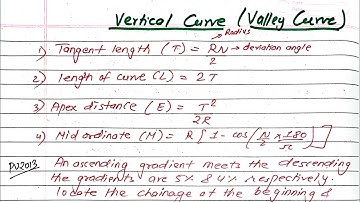 Vertical Curve (Valley Curve)
Radius
1) Tangent length (T) = RN/2 → deviation angle
2) length of curve (L) = 2T
3) Apex distance (E) = T²/2R
4) Mid ordinate (M) = R [1 - cos(N/2 × 180/π)]
PU2013 An ascending gradient meets the descending
the gradients are 5% & 4% respectively.
locate the chainage at the beginning &